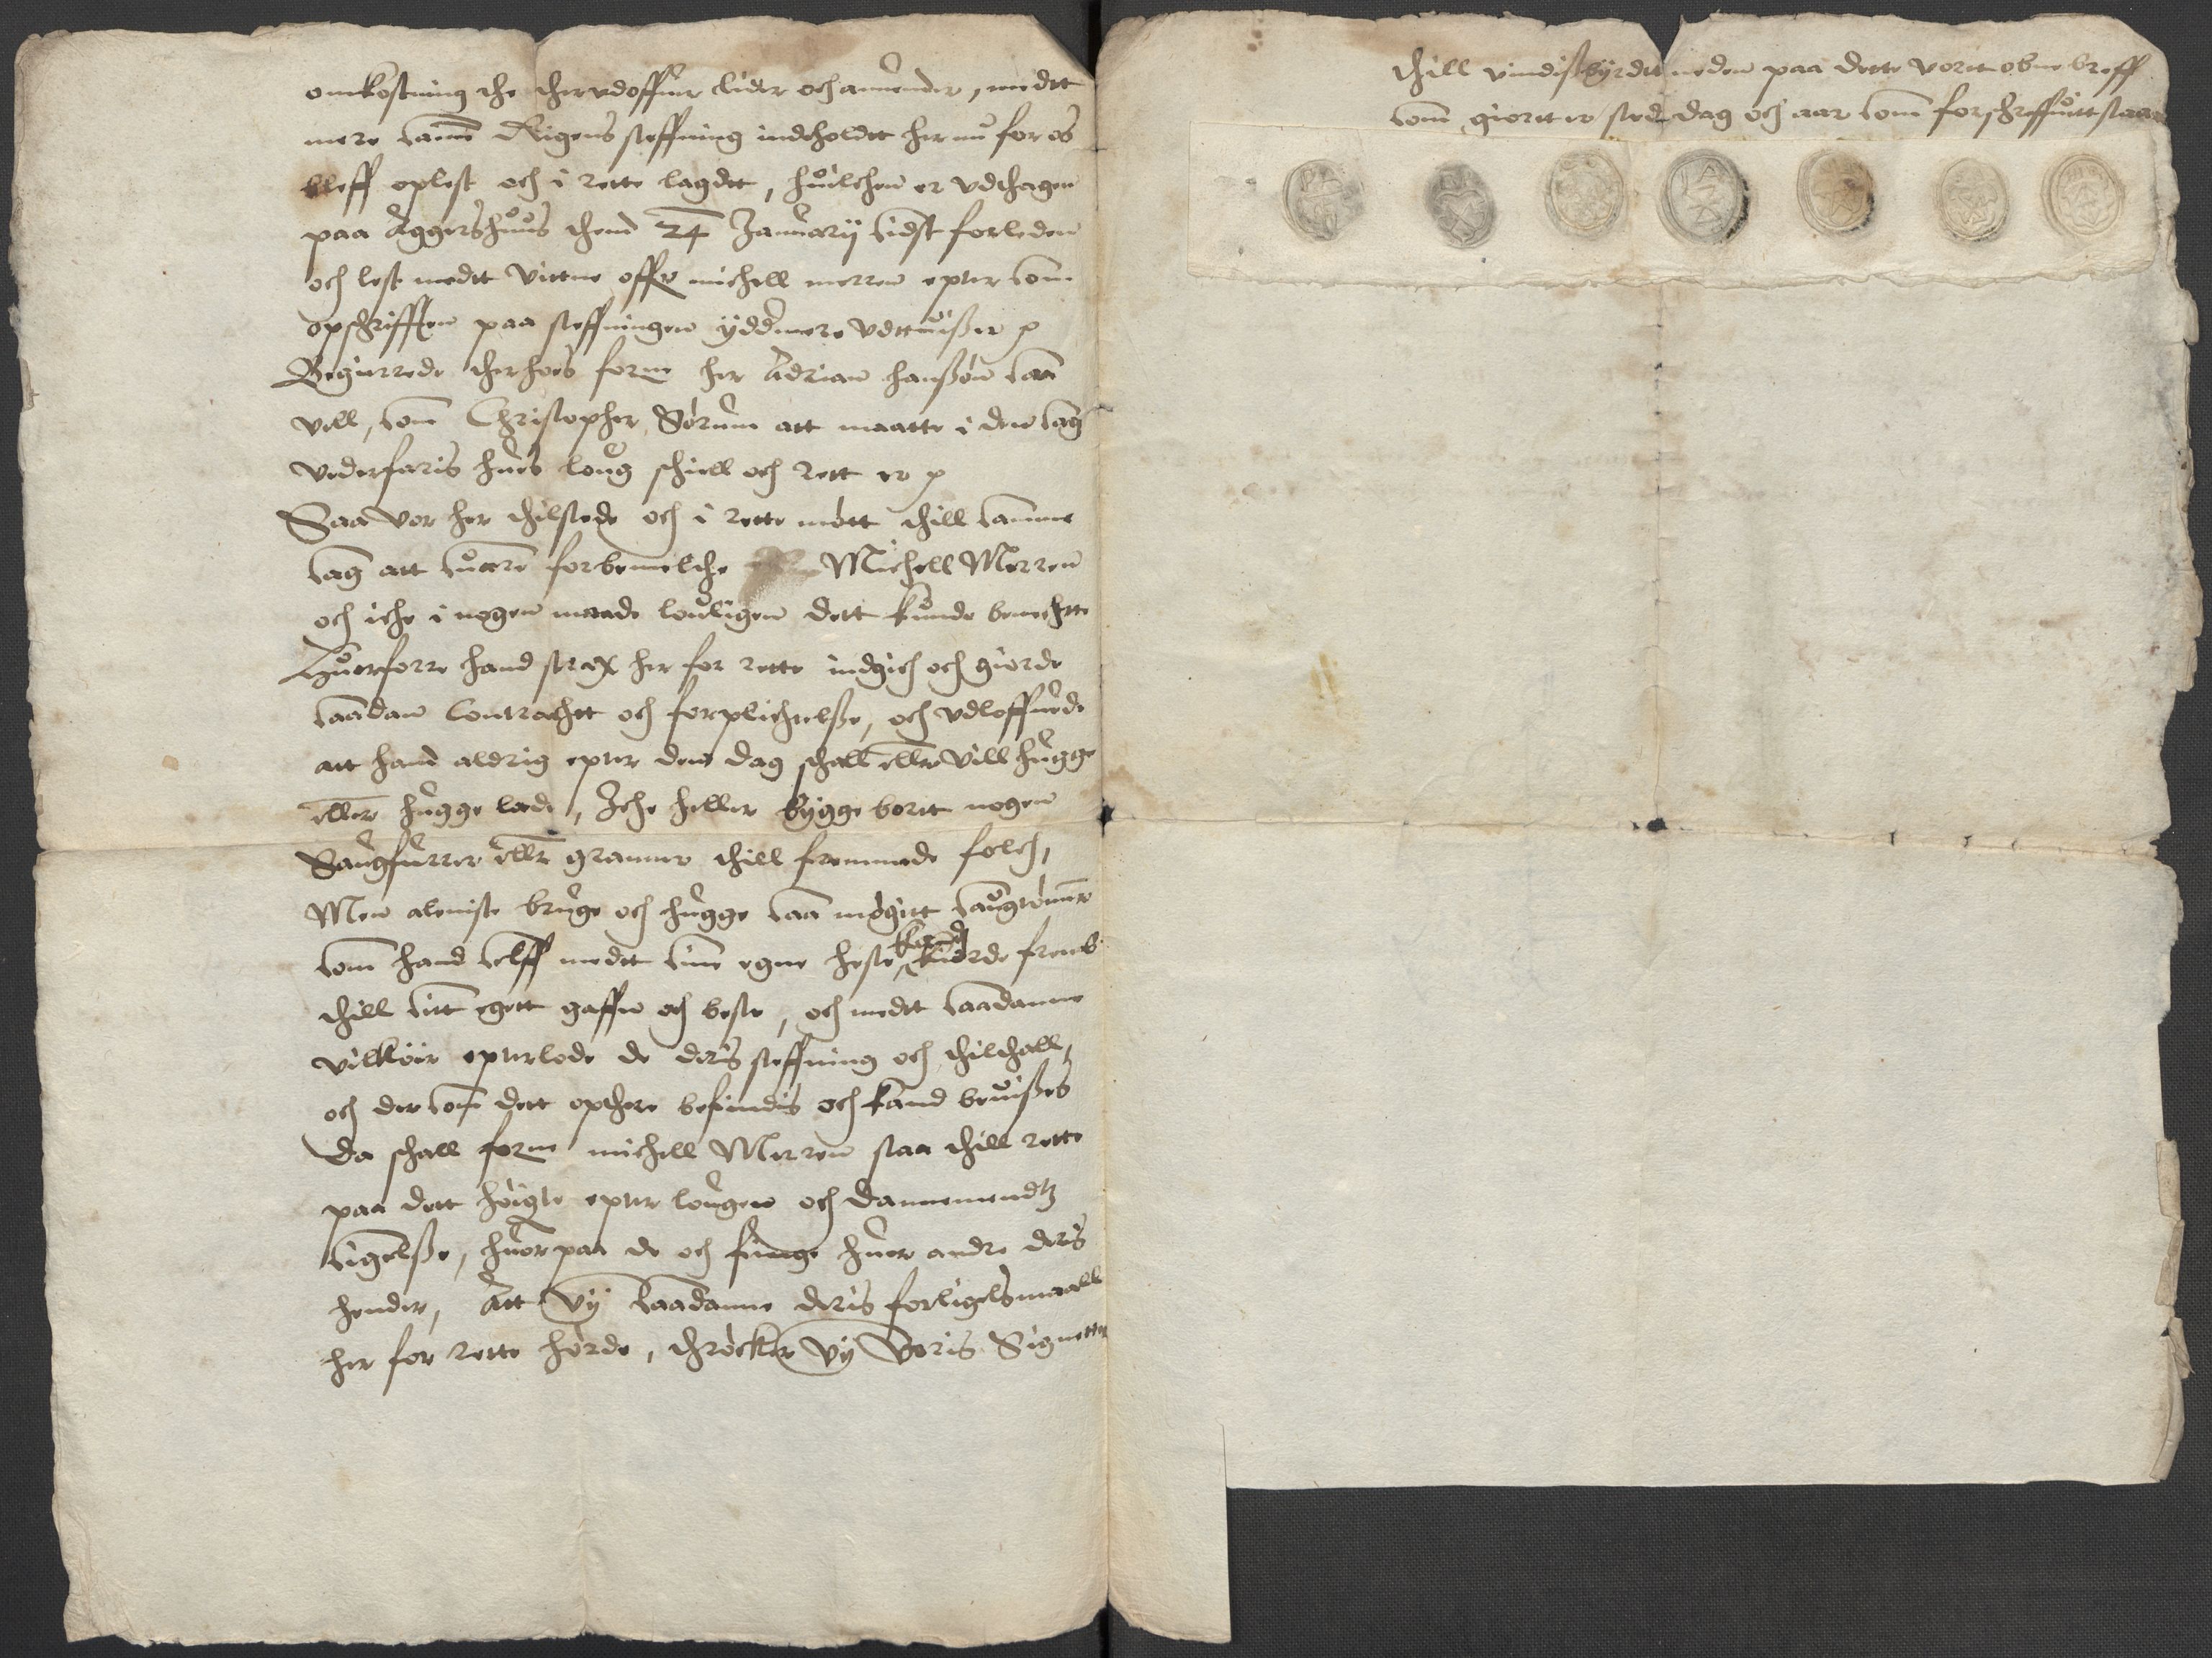 omkostning the therudoffuer lider och anuender, medtt
mere samme Rigens steffning indeholdtt her nu for os
bleff oplest och i rette lagdtt, huilchen er udthagen
paa Aggershuus thend 24 Januarij sidst forleden
och lest medtt vittne offr michell merren epter som
opschrifften paa steffningen ÿddmere udttuißer p
Begierrede therhoes forne her Adrian Hanßøn saa
vell, som Christopher Sørum att maatte i den sag
vederfaris hues loug schiell och rett er p
Saa vor her thilstede och i rette møtt thill samme
sag att suare forbemelthe Michell Merren
och iche i nogen maade louligen dett kunde benechtte
Huorforre hand strax her for rette indgich och giorde
saadan Contrachtt och forplichtelße, och udloffuede
att hand aldrig epter den dag schall eller vill hugge
eller hugge lade, Iche heller bÿgge bortt nogen
Saugfurrer eller granner thill fremmede folch,
Men aleniste bruge och hugge saa møgitt saugtømer
som hand selff medtt sine egne heste kand kiørde fremb
thill sitt egett gaffn och beste, och medtt saadanne
vilkoir epterlode de deris steffning och thilthall,
och der som dett opthere befindis och kand beuißes
da schall forne michell Merren staa thill rette
paa dett høigste epter lougen och dannemendtz
sigelße, huor paa de och finge huer andre deris
hender, Att vÿ saadanne deris forligelsmaall
her for rette hørde, thrøcker vÿ voris Signetter
thill vindißbÿrdtt neden paa dette vortt obne breff
som giortt er sted dag och aar som forschreffuitt staar